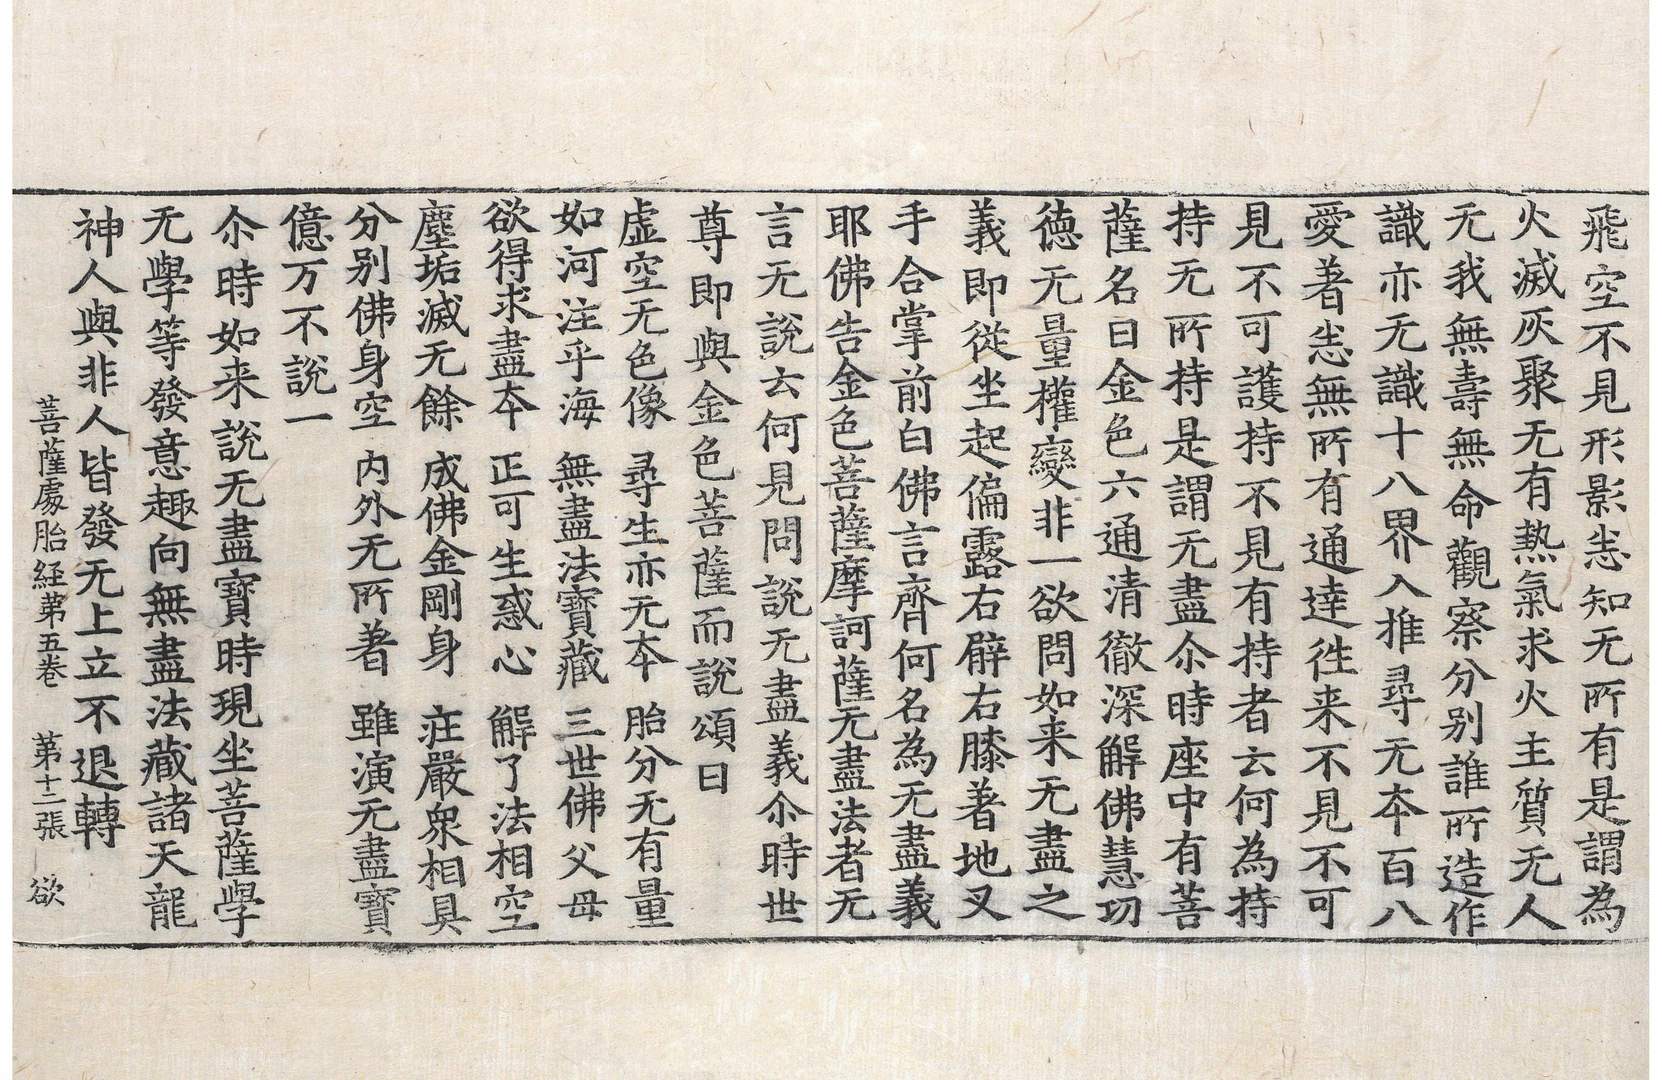 飛空不見形影恙知无所有是謂為
火滅灰聚无有熱氣求火主質无人
无我無壽無命觀察分別誰所造作
識亦无識十八界入推尋无夲百八
愛著恙無所有通達徃来不見不可
見不可護持不見有持者云何為持
持无所持是謂无盡尒時座中有菩
薩名曰金色六通清徹深解佛慧㓛
德无量權變非一欲問如来无盡之
義即從坐起偏露右臂右膝著地叉
手合掌前白佛言齊何名為无盡義
耶佛告金色菩薩摩訶薩无盡法者无
言无說云何見問說无盡義尒時世
尊即與金色菩薩而說頌曰
虛空无色像 尋生亦无夲 胎分无有量
如河注乎海 無盡法寶藏 三世佛父母
欲得求盡夲 正可生惑心 解了法相空
塵垢滅无餘 成佛金剛身 莊嚴衆相具
分別佛身空 內外无所著 雖演无盡寶
億万不說一
尒時如来說无盡寶時現坐菩薩學
无學等發意趣向無盡法藏諸天龍
神人與非人皆發无上立不退轉
菩薩處胎経苐五卷 苐十二張 欲